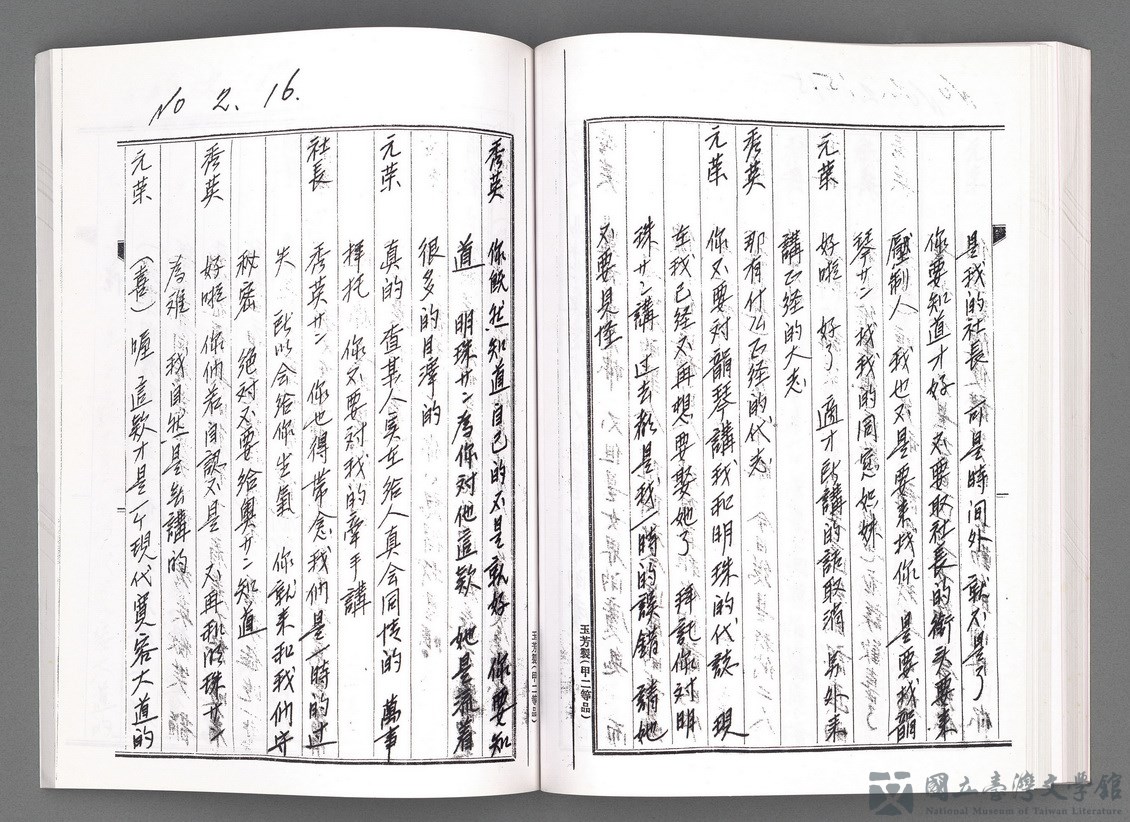 是我的社長 可是時間外 就不是了
你要知道才好 不要取社長的銜头要來
壓制人 我也不是要來找你 是要找韻
琴廿二 找我的同窓姐妹
元荣 好啦 好了 適才所講的話取消 另外來
講正経的大志
秀英 那有什么正経的代志
元荣 你不要对韻琴講我和明珠的代誌 現
在我已経不再想要娶她了 拜託你对明
珠廿二講 过去都是我一時的誤錯 請她
不要見怪
玉芳製(甲二等品)
NO 2. 16.
秀英 你既然知道自己的不是就好 你要知
道 明珠廿二為你对他這欵 她是流着
很多的目滓的
元荣 真的 查某人実在給人真会同情的 萬事
拜托 你不要対我的牽手講
社長 秀英廿二 你也得帶念我们是一時的过
失 所以会給你生氣 你就来和我们守
秘密 絶对不要給奥廿二知道
秀英 好啦 你们若自認不是 不再和明珠廿二
為难 我自然是無講的
元荣 (喜) 哑 這欵才是一个現代寬容大道的
玉芳製(甲二等品)
國立臺灣文學館
National Museum of Taiwan Literature